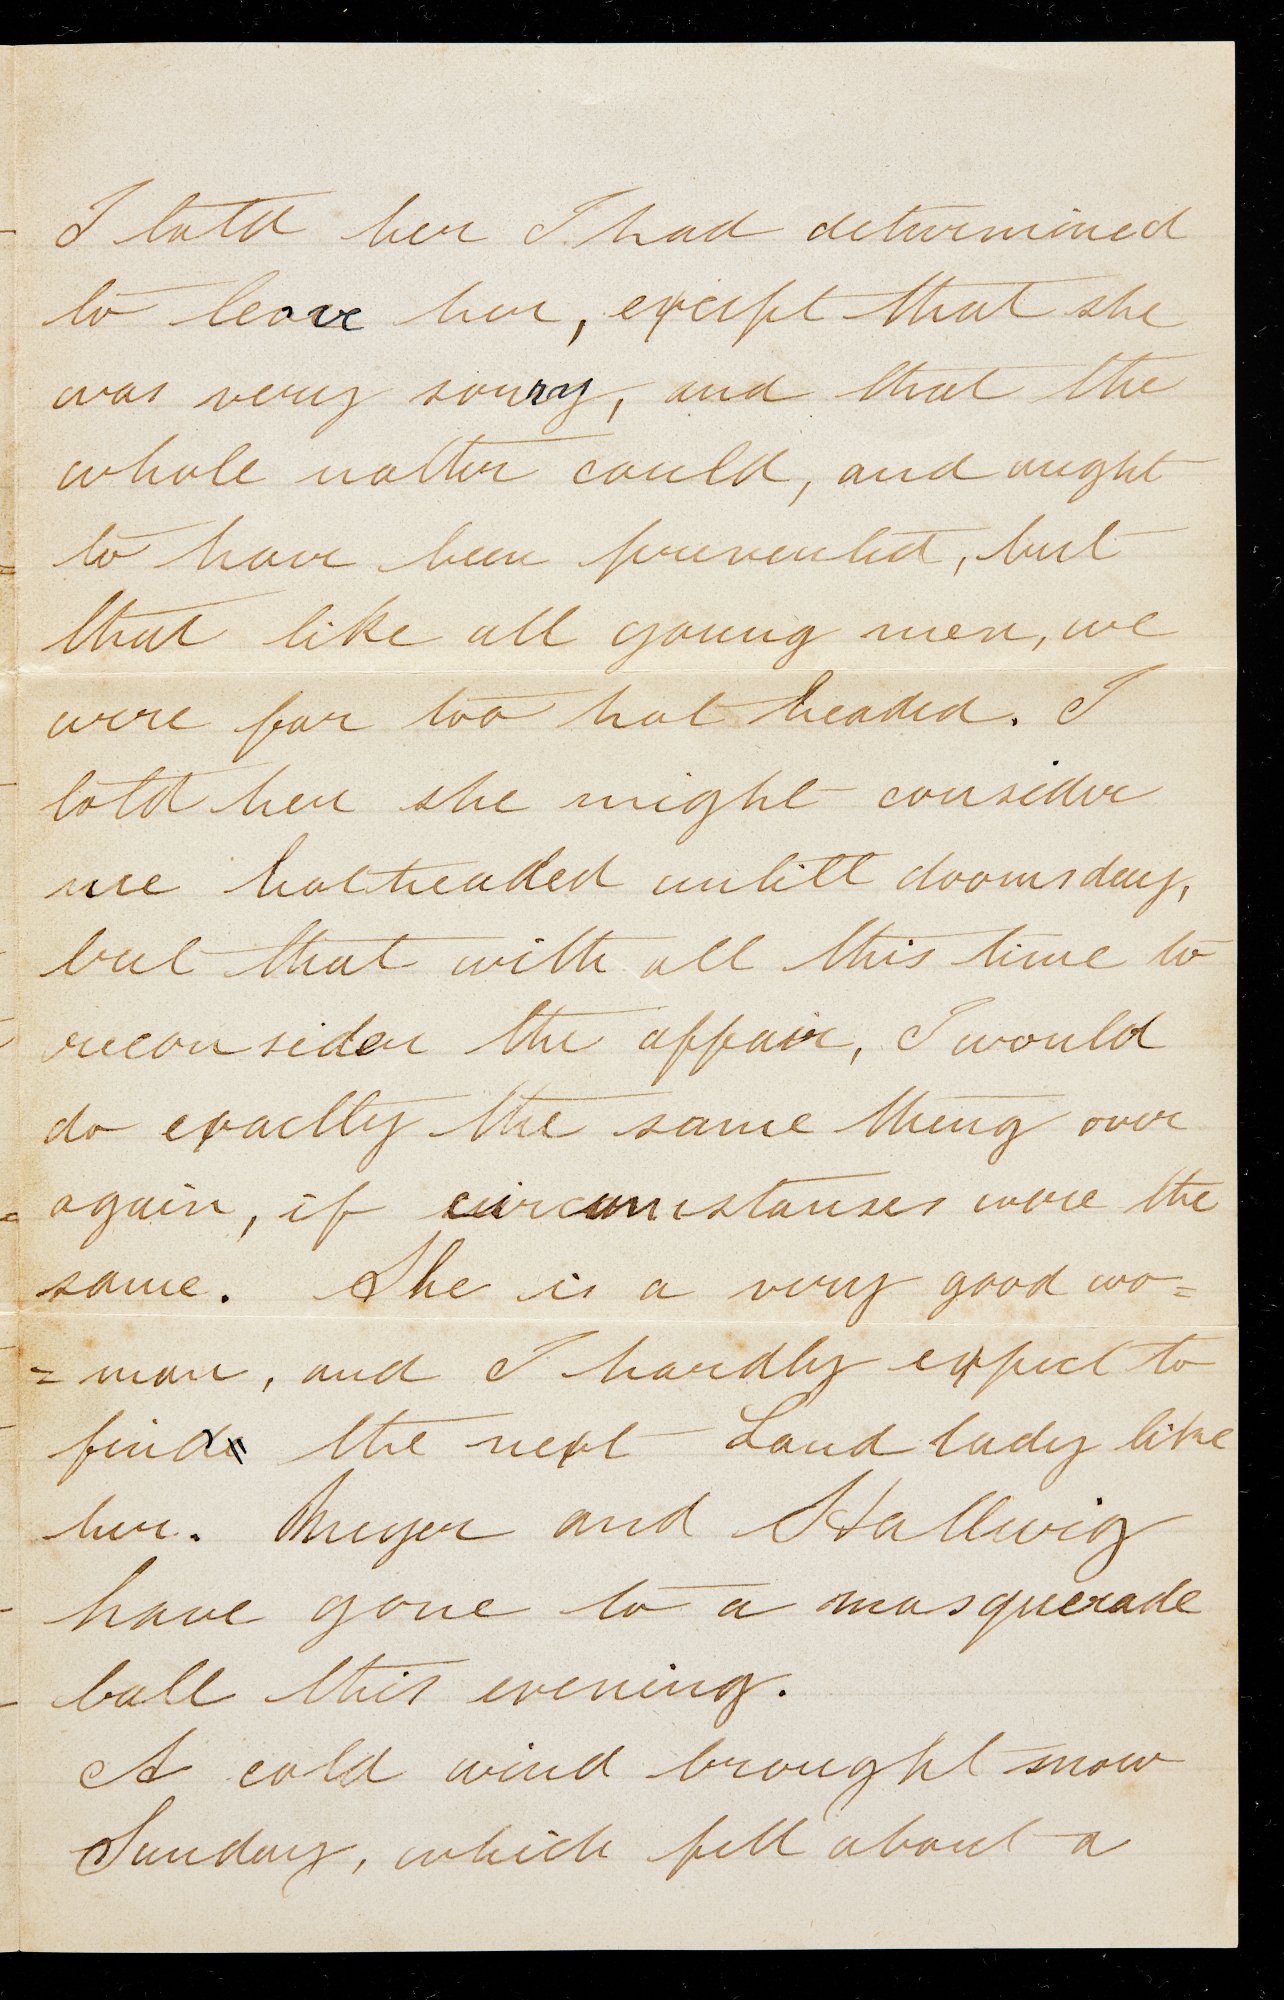 I told her I had determined
to leave her, except that she
was very sorry, and that the
whole matter could, and ought
to have been prevented, but
that like all young men, we
were far too hot headed. I
told her she might consider
me hotheaded untill doomsday,
but that with all this time to
reconsider the affair, I would
do exactly the same thing over
again, if circumstanses were the
same. She is a very good wo=
=man, and I hardly expect to
find the next Land lady like
her. Meyer and Hallwig
have gone to a masquerade
ball this evening.
A cold wind brought snow
Sunday, which fell about a